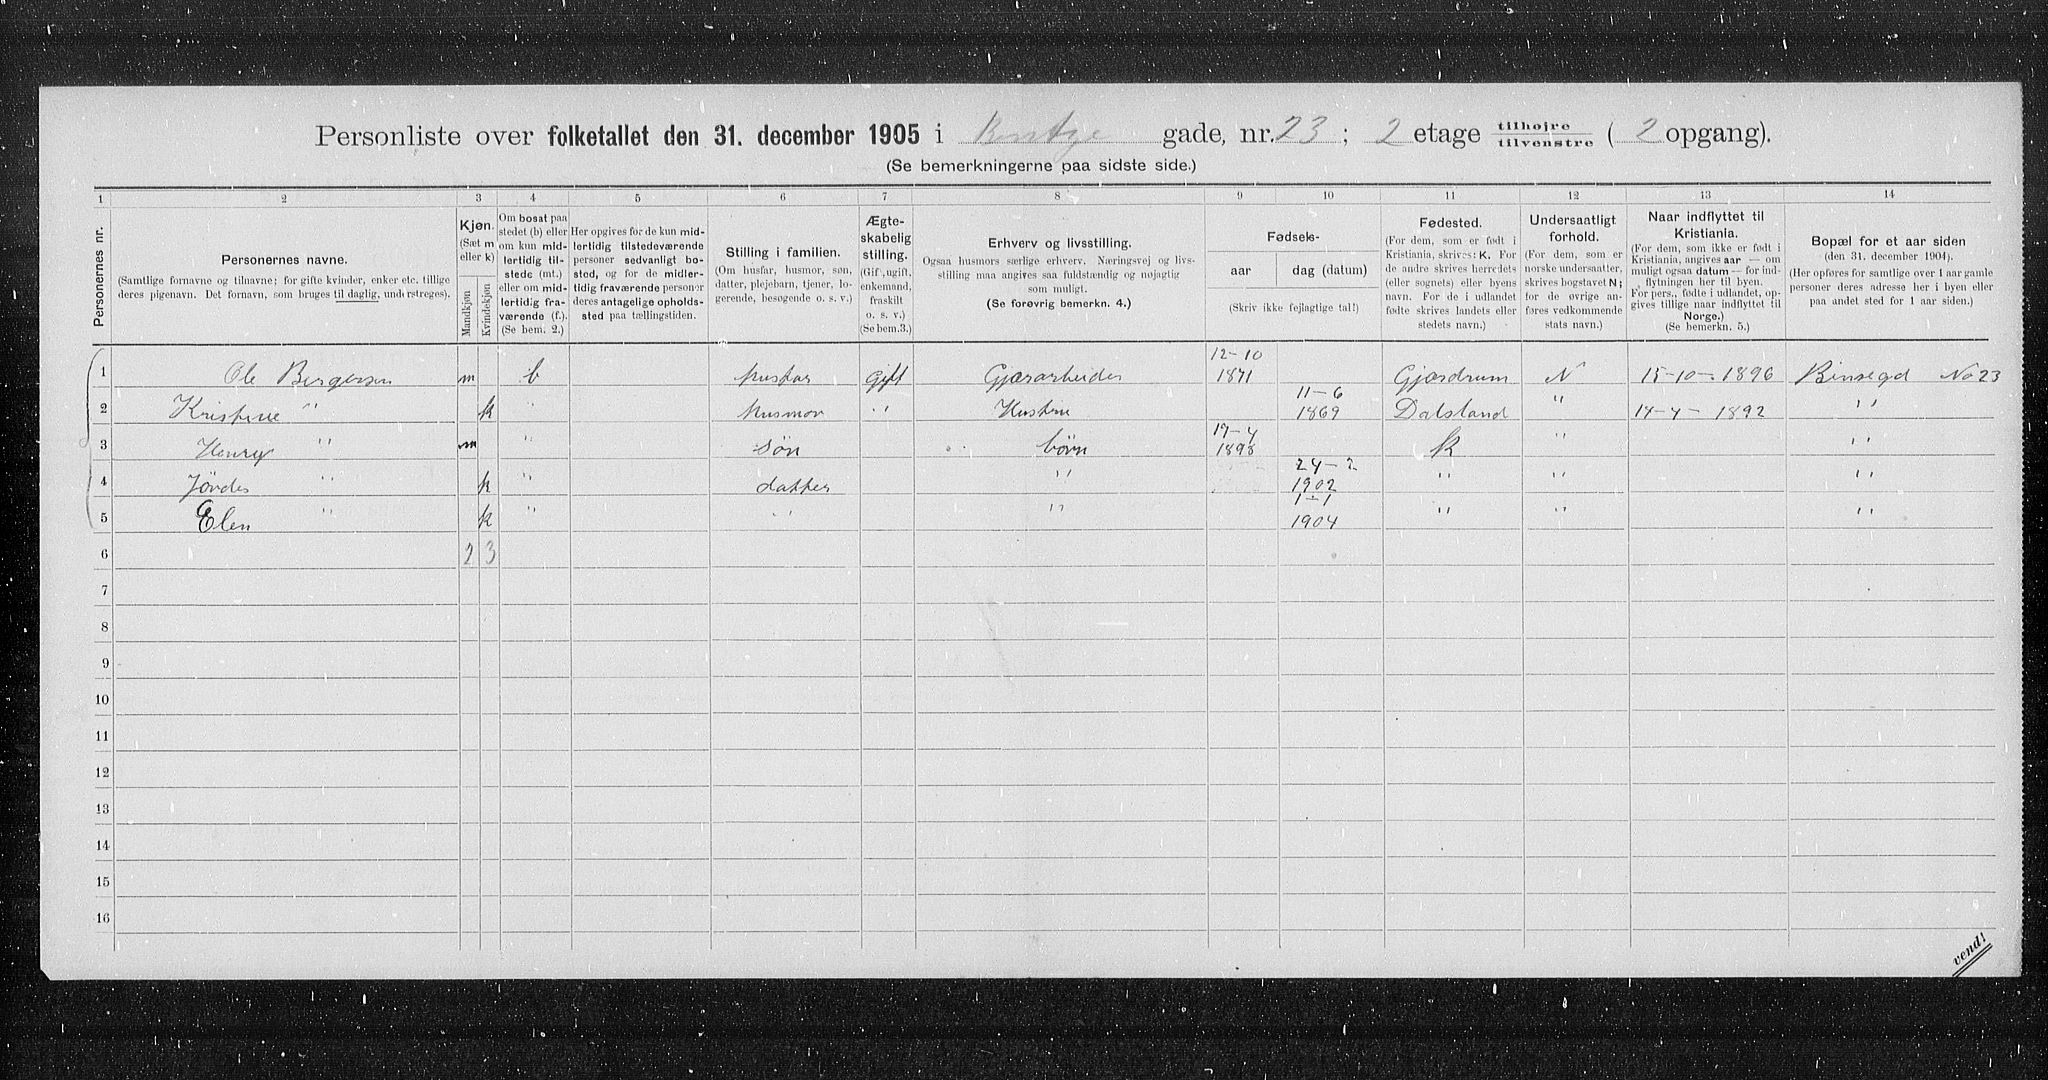 Personliste over folketallet den 31. december 1905 i Bentze gade, nr. 23; 2 etage tilhøjre tilvenstre (2 opgang).
(Se bemerkningerne paa sidste side.)
1 2 3 4 5 6 7 8 9 10 11 12 13 14
Personernes nr.
Personernes navne.
(Samtlige fornavne og tilnavne; for gifte kvinder, enker etc. tillige deres pigenavn. Det fornavn, som bruges til daglig, understreges).
Kjøn.
(Sæt m eller k)
Mandkjøn
Kvindekjøn
Om bosat paa stedet (b) eller om kun midlertidig tilstede (mt.) eller om midlertidig fraværende (f.). (Se bem. 2.)
Her opgives for de kun midlertidig tilstedeværende personer sedvanlig bosted, og for de midlertidig fraværende personer deres antagelige opholdssted paa tællingstiden.
Stilling i familien.
(Om husfar, husmor, søn, datter, plejebarn, tjener, logerende, besøgende o. s. v.)
Ægteskabelig stilling.
(Gif, ugift, enkemand, fraskilt o. s. v.)
(Se bem. 3.)
Erhverv og livsstilling.
Ogsaa husmors særlige erhverv. Næringsvej og livsstilling maa angives saa fuldstændig og nøjagtig som muligt.
(Se forøvrig bemerkn. 4.)
Fødsels-
aar
dag (datum)
(Skriv ikke fejlagtige tal!)
Fødested.
(For dem, som er født i Kristiania, skrives: K. For de andre skrives herredets (eller sognets) eller byens navn. For de i udlandet fødte skrives landets eller stedets navn.)
Undersaatligt forhold.
(For dem, som er norske undersaatter, skrives bogstavet N; for de øvrige anføres vedkommende stats navn.)
Naar indflyttet til Kristiania.
(For dem, som ikke er født i Kristiania, angives aar — om muligt ogsaa datum — for indflytningen her til byen. For pers., fødte i udlandet, opgives tillige naar indflyttet til Norge.)
(Se bemerkn. 5.)
Bopæl for et aar siden
(den 31. december 1904).
(Her opføres for samtlige over 1 aar gamle personer deres adresse her i byen eller paa andet sted for 1 aar siden.)
12-10
1 Ole Bergersen m b husfar Gift Gjærarbeider 1871 Gjærdrum N 15-10-1896 No 23
11-6
2 Kristine " k " husmor " Hustru 1869 Dalsland " 14-4-1892 "
19-4
3 Henry " m " søn børn 1898 K " "
24-2
4 Jørdes " k " datter " 1902 " " "
1-1
5 Elen " k " " " 1904 " " "
6 2 3
7
8
9
10
11
12
13
14
15
16
vend!